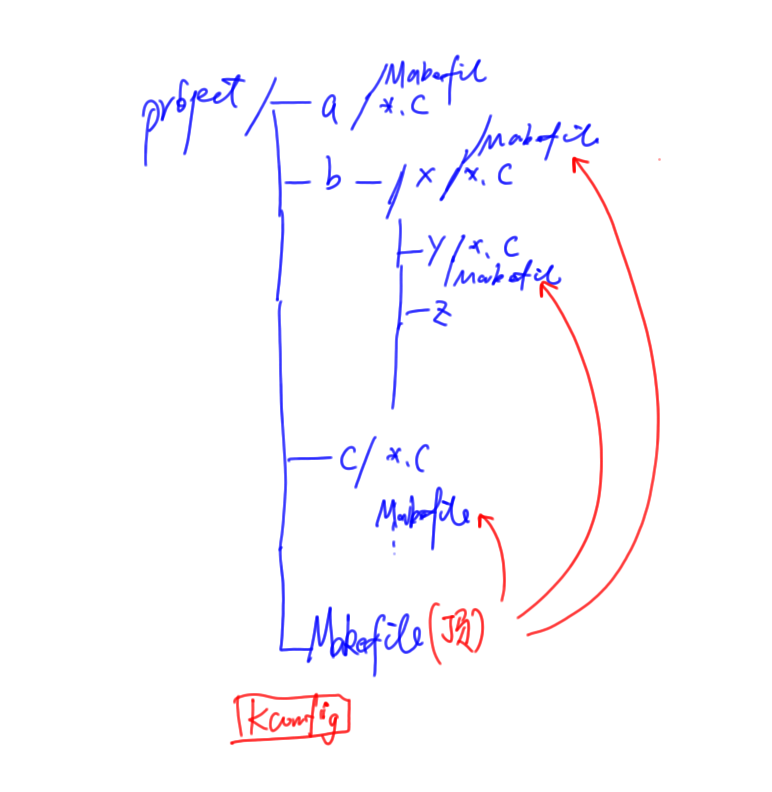 project / a / Makefil
*.c
b / x / Makefile
*.c
y / *.c
Makefile
z
c / *.c
Makefile
Makefile (顶)
Kconfig